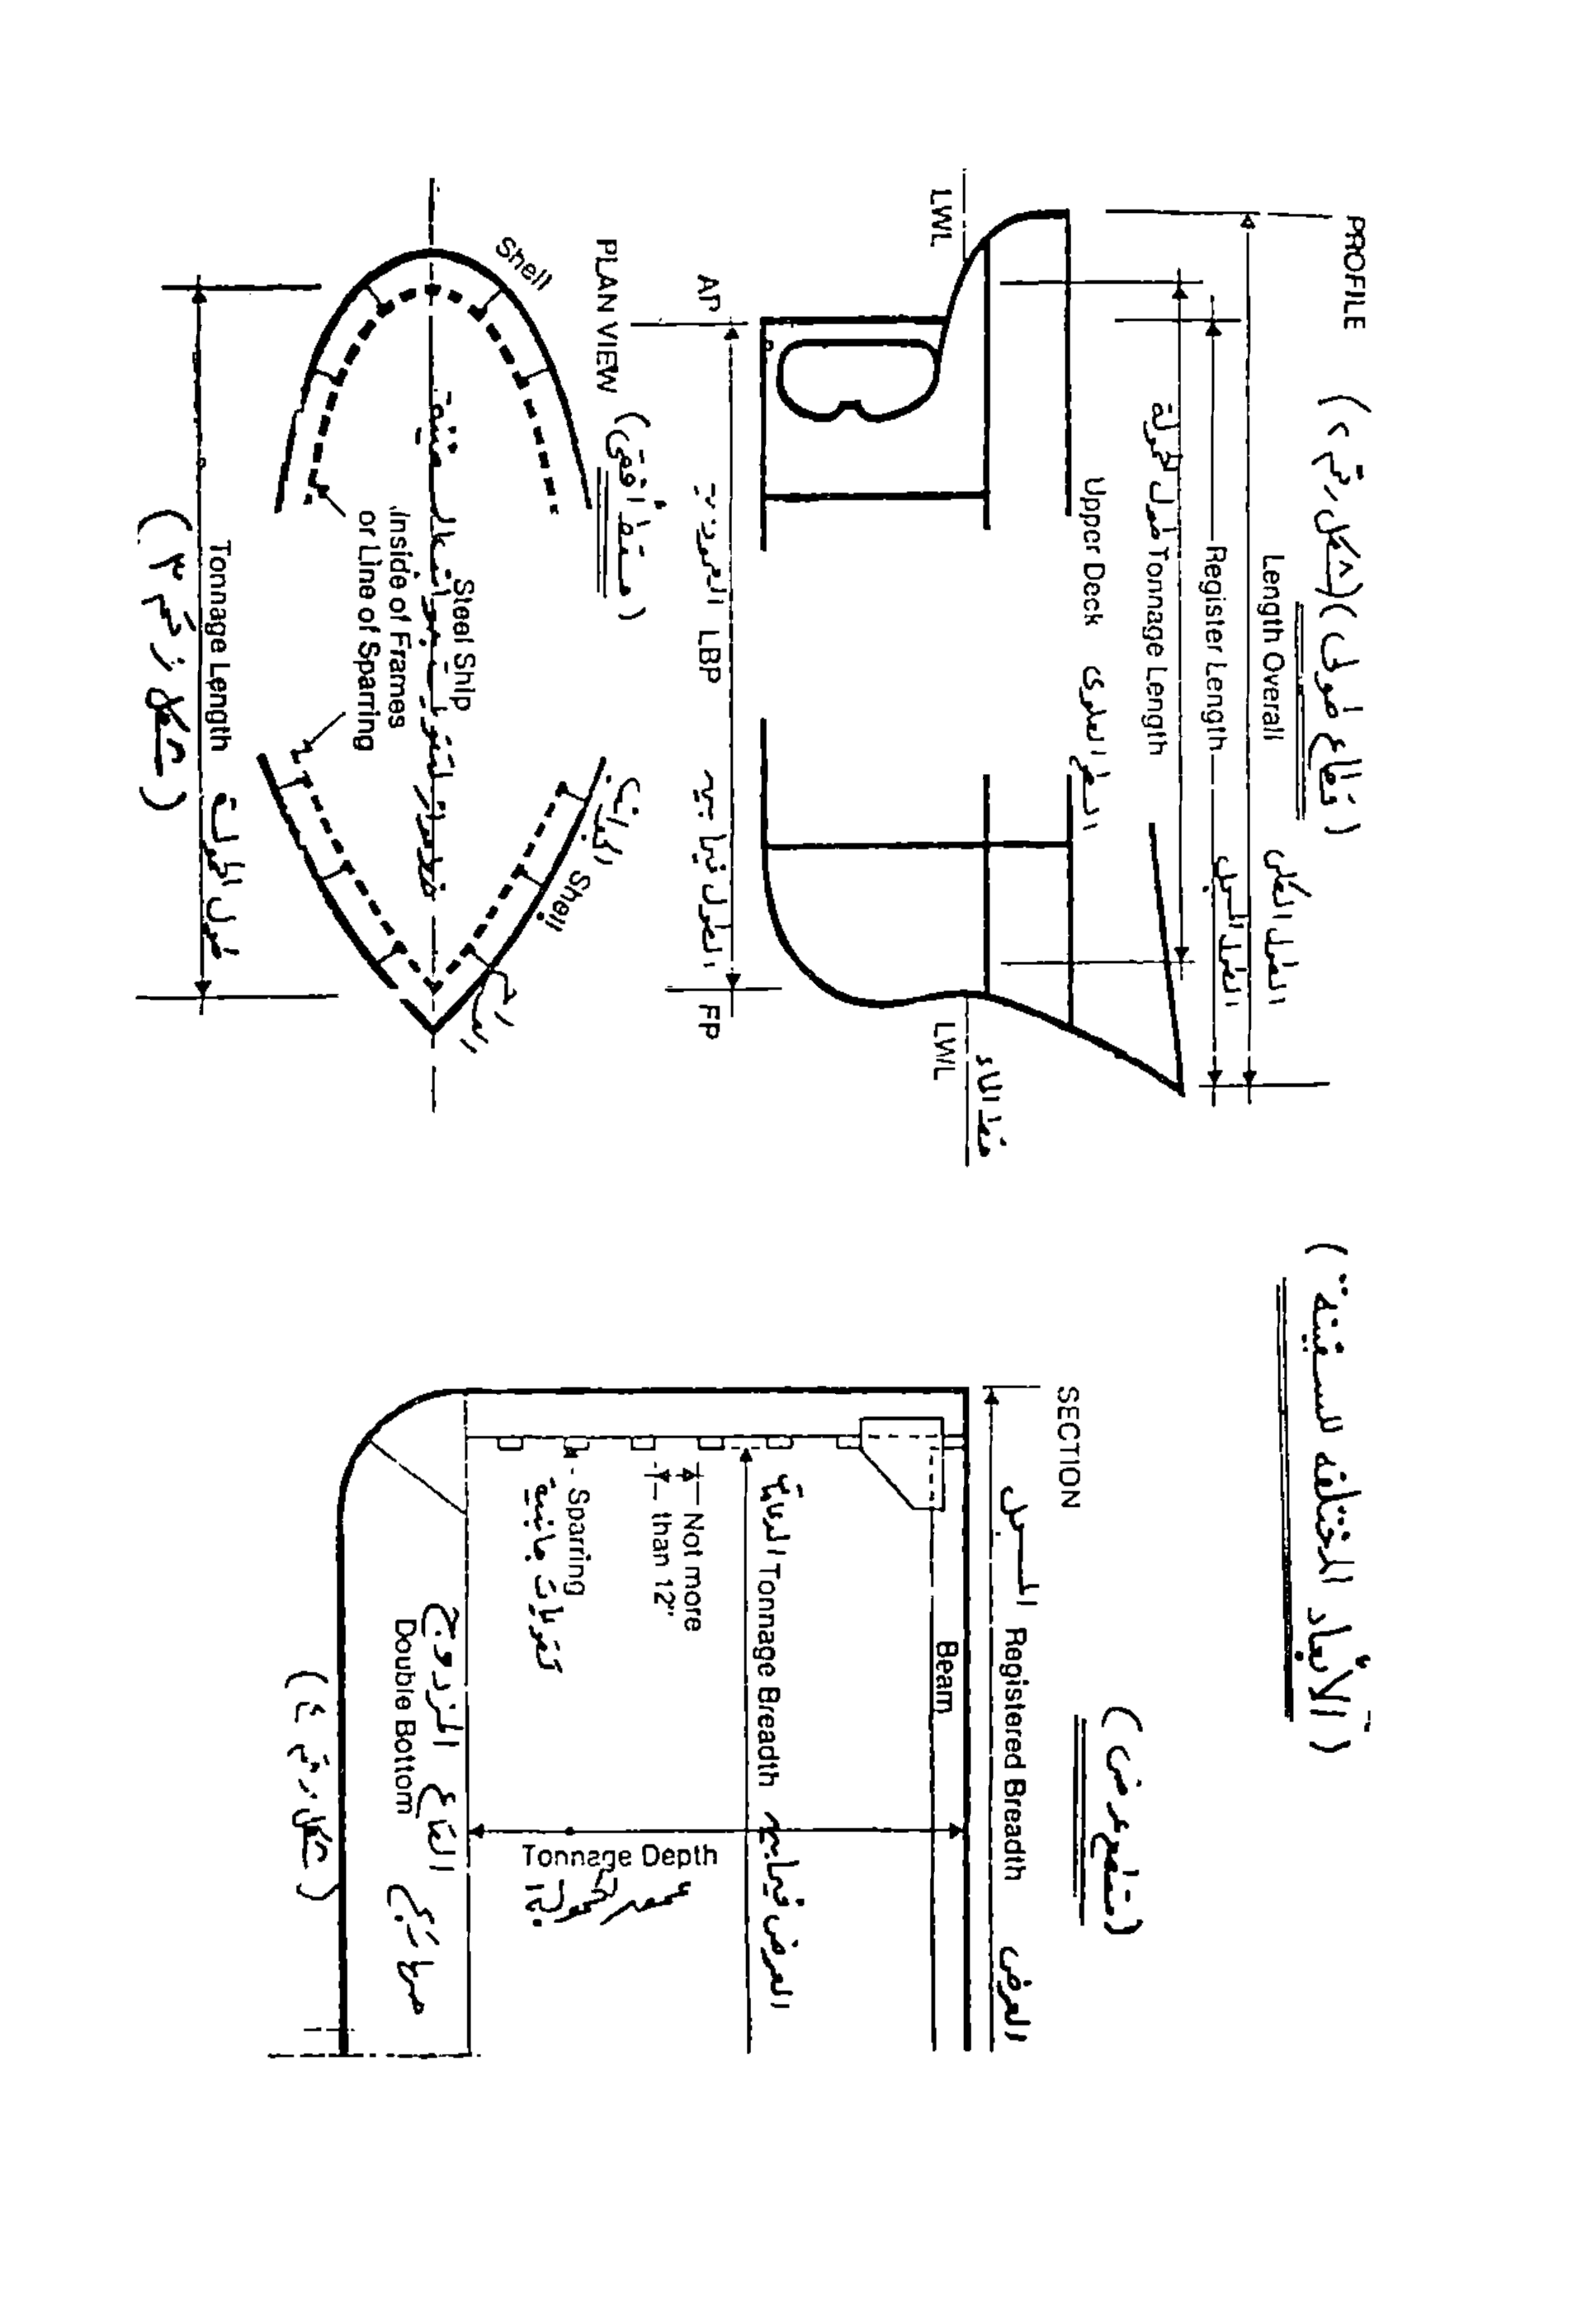 (الأبعاد المختلفه للسفينة)
PROFILE
(قطاع طولى) (شكل رقم ٢)
Length Overall الطول الكلى
Register Length الطول المسجل
Tonnage Length طول الحمولة
Upper Deck السطح العلوى
LWL
LWL
خط الماء
AP
الطول فيما بين LBP العموديـن
FP
PLAN VIEW (مسقط أفقى)
Shell
Shell
Steel Ship
Inside of Frames
or Line of Sparring
Tonnage Length طول الحمولة
(شكل رقم ٣)
SECTION
(مقطع عرضى)
العرض Registered Breadth المسجل
Beam
Tonnage Breadth العرض فيما بين
Not more
than 12"
Sparring
تقويات جانبية
Tonnage Depth
القاع المزدوج
Double Bottom
(شكل رقم ٤)